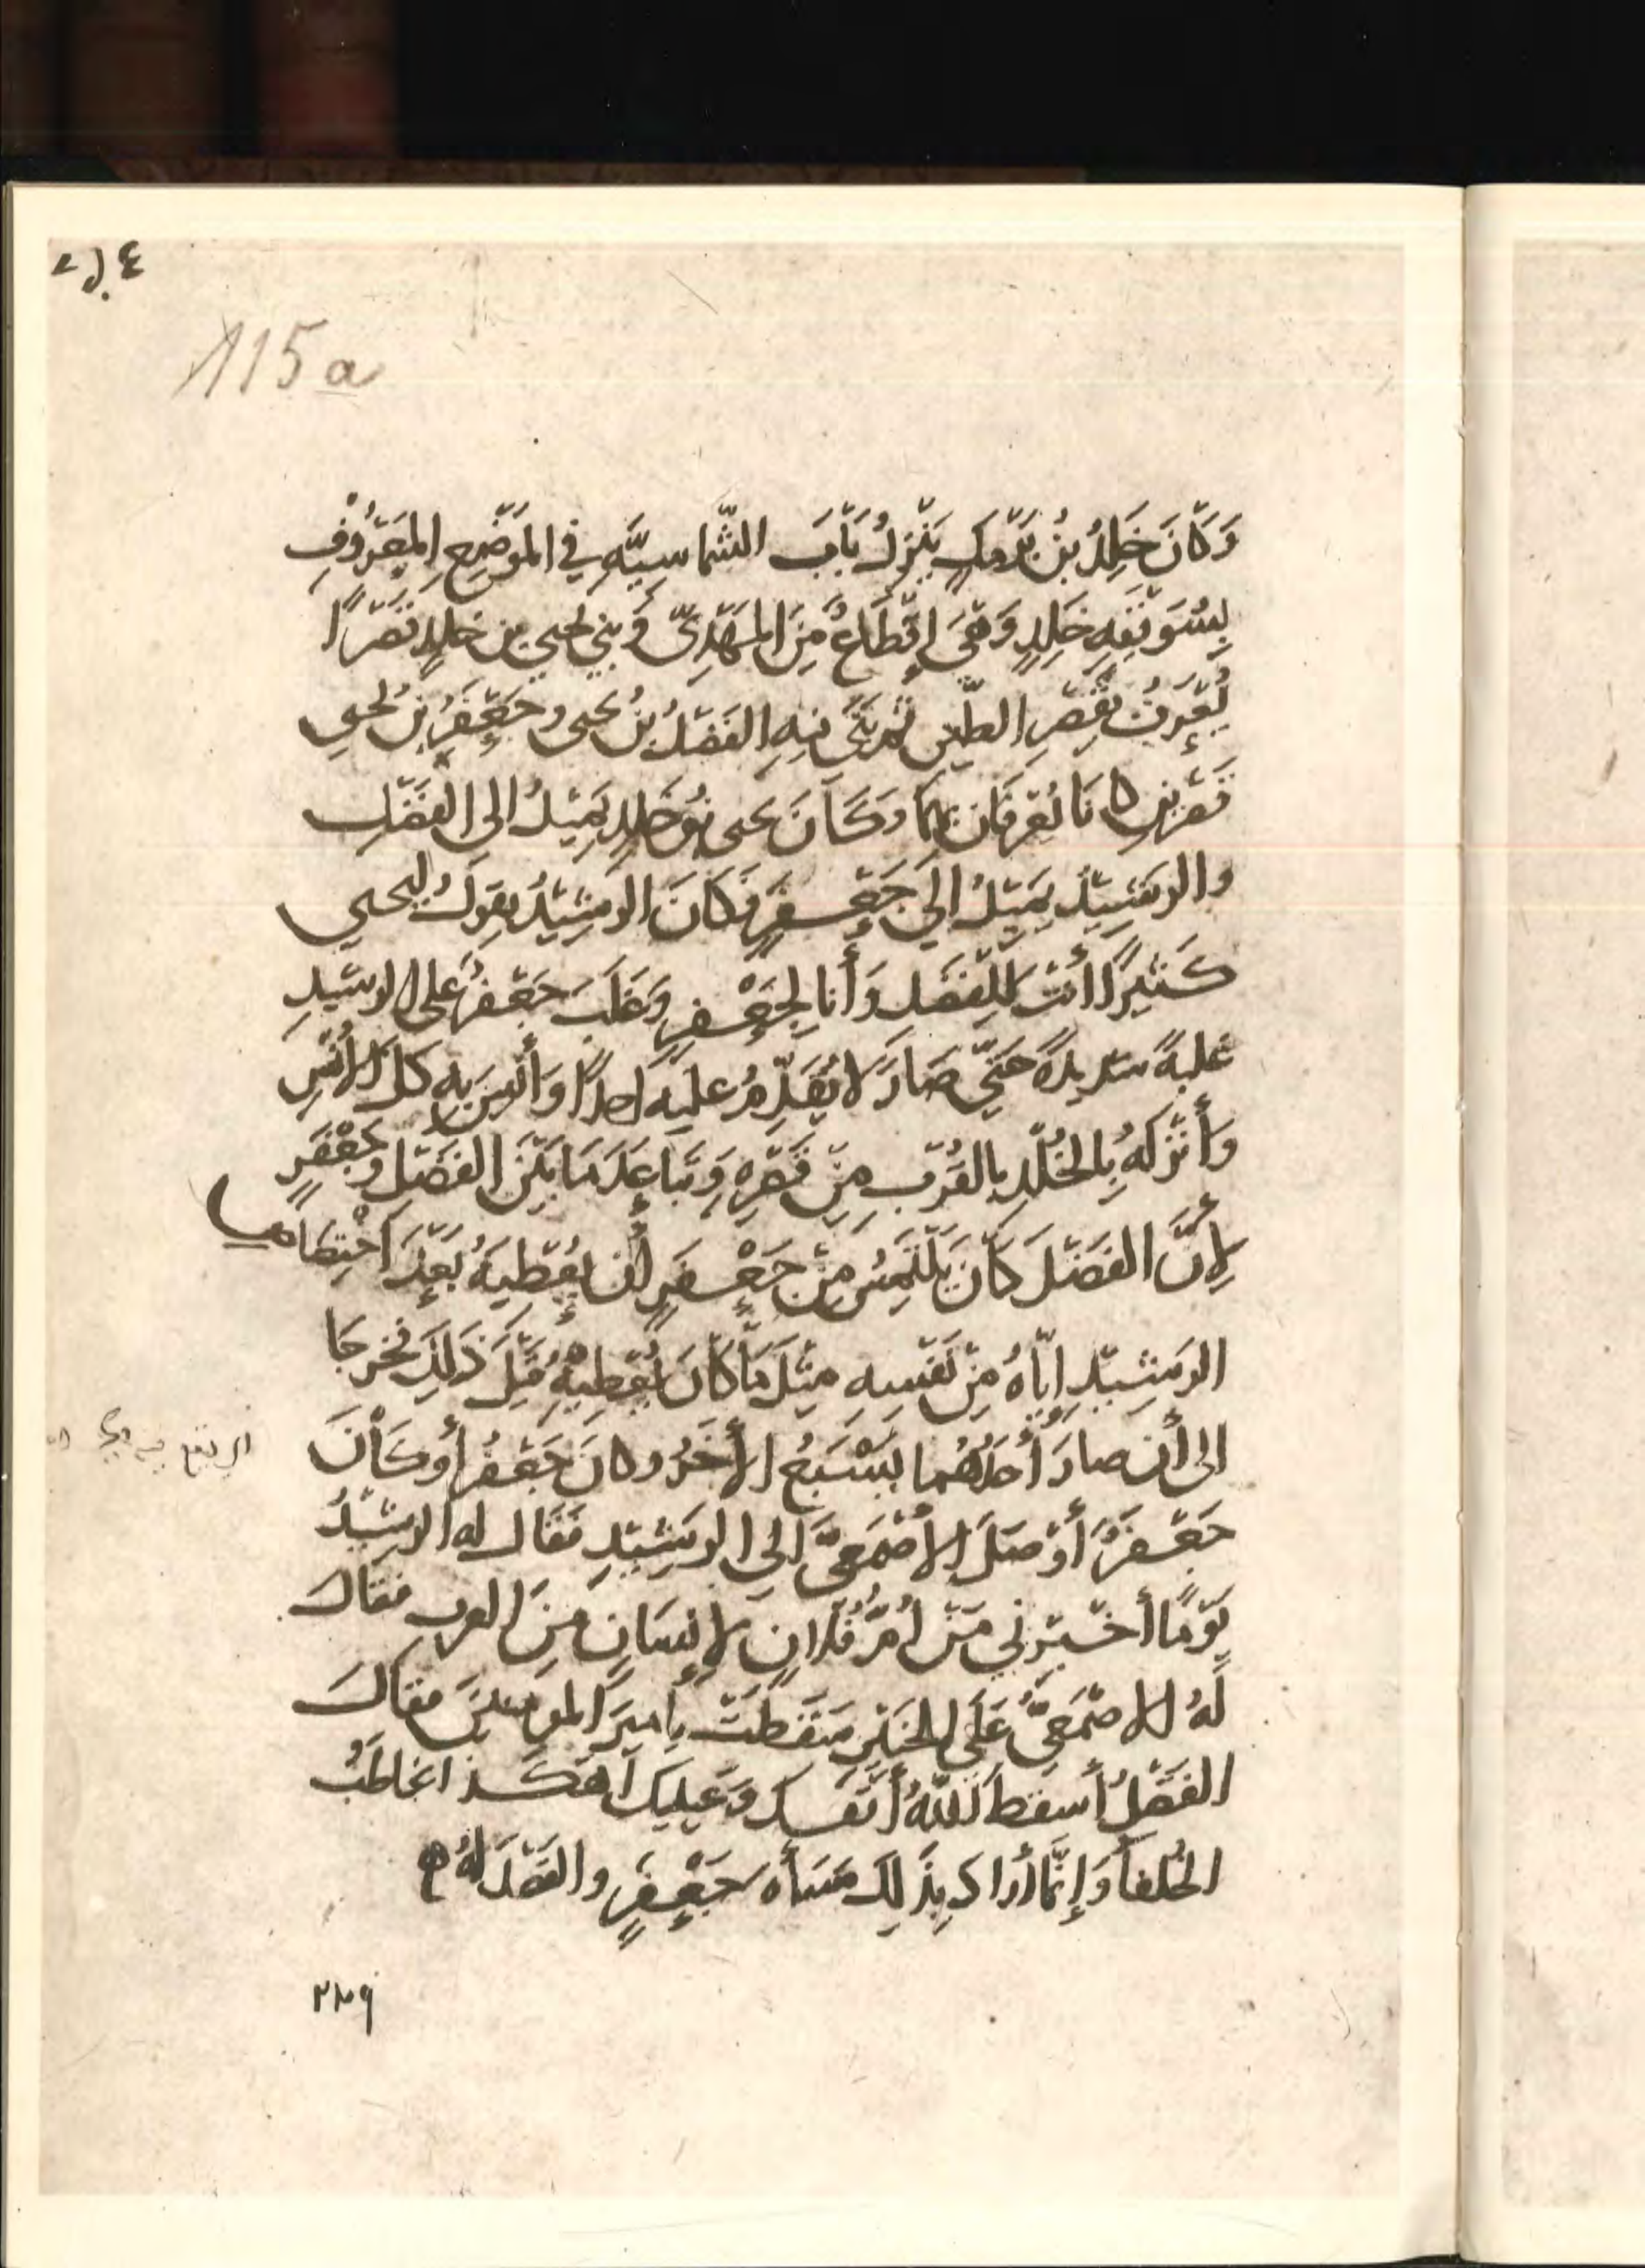 115a
وَكَانَ خَلِدُ بْنُ بَرْمَكٍ يَنْزِلُ بَابَ الشَّماسِيَّهِ فِي المَوْضِعِ المَعْرُوْفِ
بِسُوَيْقَهِ خَلِدٍ وَهْىَ إِقْطَاعٌ مِنَ المَهْدِىّ وَبني يحيى بن خلدٍ قَصْرًا
يُعْرَفُ بِقَصْرِ الطين ثم بَنَى فيهِ الفَضْلُ بْنُ يحيى وجَعْفَرُ بْنُ يحيى
قَصْرين كانَا يُعْرَفَانِ بهما وَكَانَ يحيى بْنُ خَلِدٍ يَمِيْلُ الى الفَضْلِ
والرَشِيْدُ يَمِيْلُ الَي جَعْفَرٍ فَكَانَ الرَشِيْدُ يقولُ ليحيي
كَثِيرًا أنْتَ لِلْفَضْلِ وَأَنا لِجَعْفَرٍ وَغَلَبَ جَعْفَرُ عَلى الرشيدِ
غلبةً شديدةً حَتَّي صَارَ لا يُقَدِّمُ عليه احدًا وَأَنِسَ بِهِ كلَّ الأُنْسِ
وَأَنْزَلَهُ بِالخُلْدِ بالقُرْبِ مِنْ قَصْرِهِ وَتَبَاعَدَ مَا بَيْنَ الفَضْلِ وَجَعْفَرٍ
لِأَنَّ الفَضْلَ كَانَ يَلْتَمِسُ مِنْ جَعْفَرٍ أَن يُعْطِيَهُ بَعْدَ
الرَشِيْدِ اِيّاهُ مِنْ نَفْسِهِ مِثْلَ مَا كَانَ يُعْطِيْهِ قَبْلَ ذَلِكَ فخرجَا
الى أن صارَ أَحَدُهُما يَسْبَعُ الأخَرَ وكانَ جَعْفَرُ أو كَانَ
جَعْفَرٌ أَوْصَلَ الأصْمَعِيَّ الي الرَشِيْدِ فَقَالَ له الرشيْدُ
يَوْمًا أخْبِرْني مَنْ أُمُّ فُلانٍ لإِنْسَانٍ مِنَ العرب فقالَ
لَهُ الأصْمَعِيُّ عَلَى الخَبِيْرِ سَقَطْتَ يا أميرَ المومنينَ فقالَ
الفَضْلُ أسقطَ اللّهُ أنْفَكَ وَعَيْنيكَ أهَكَذا تخاطبُ
الخُلفا وَإِنَّما أرادَ بِذَلِكَ مَسَأه جَعْفَرٍ والفَضْلَ لهُ